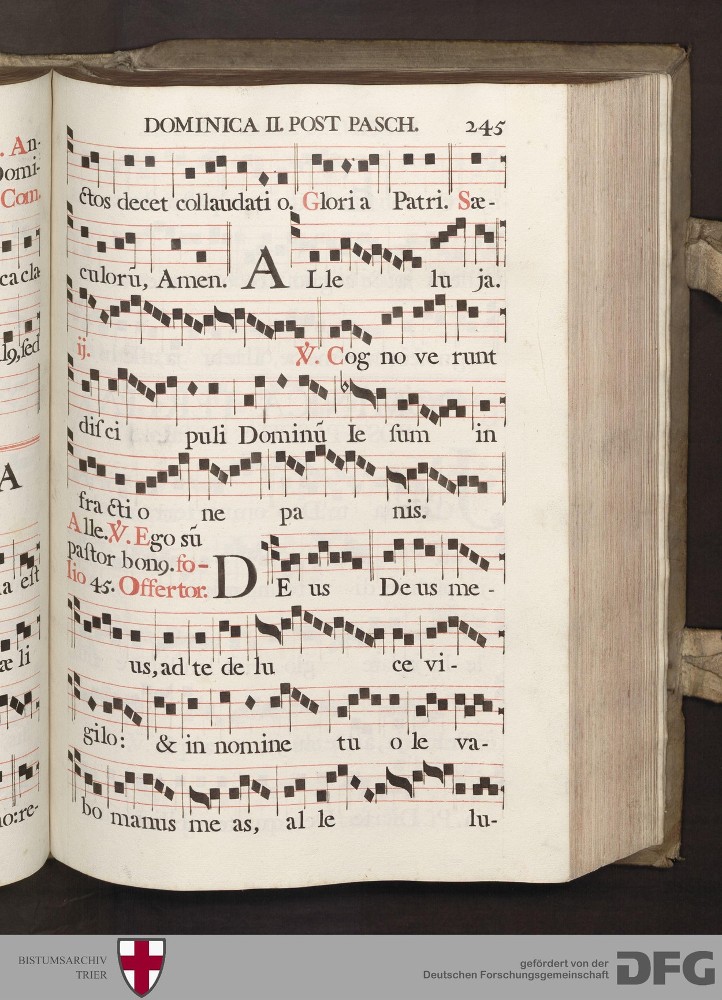 . An-
Domi-
Com.
ca cla
19, sed
A
a est
æ li
no: re-
DOMINICA II. POST PASCH. 245
ctos decet collaudati o. Glori a Patri. Sæ-
culorū, Amen. A Lle lu ja.
ij. ℣. Cog no ve runt
disci puli Dominū Ie sum in
fra cti o ne pa nis.
Alle. ℣. Ego sū
pastor bon9. fo-
lio 45. Offertor. D E us De us me-
us, ad te de lu ce vi-
gilo: & in nomine tu o le va-
bo manus me as, al le lu-
BISTUMSARCHIV
TRIER
gefördert von der
Deutschen Forschungsgemeinschaft
DFG